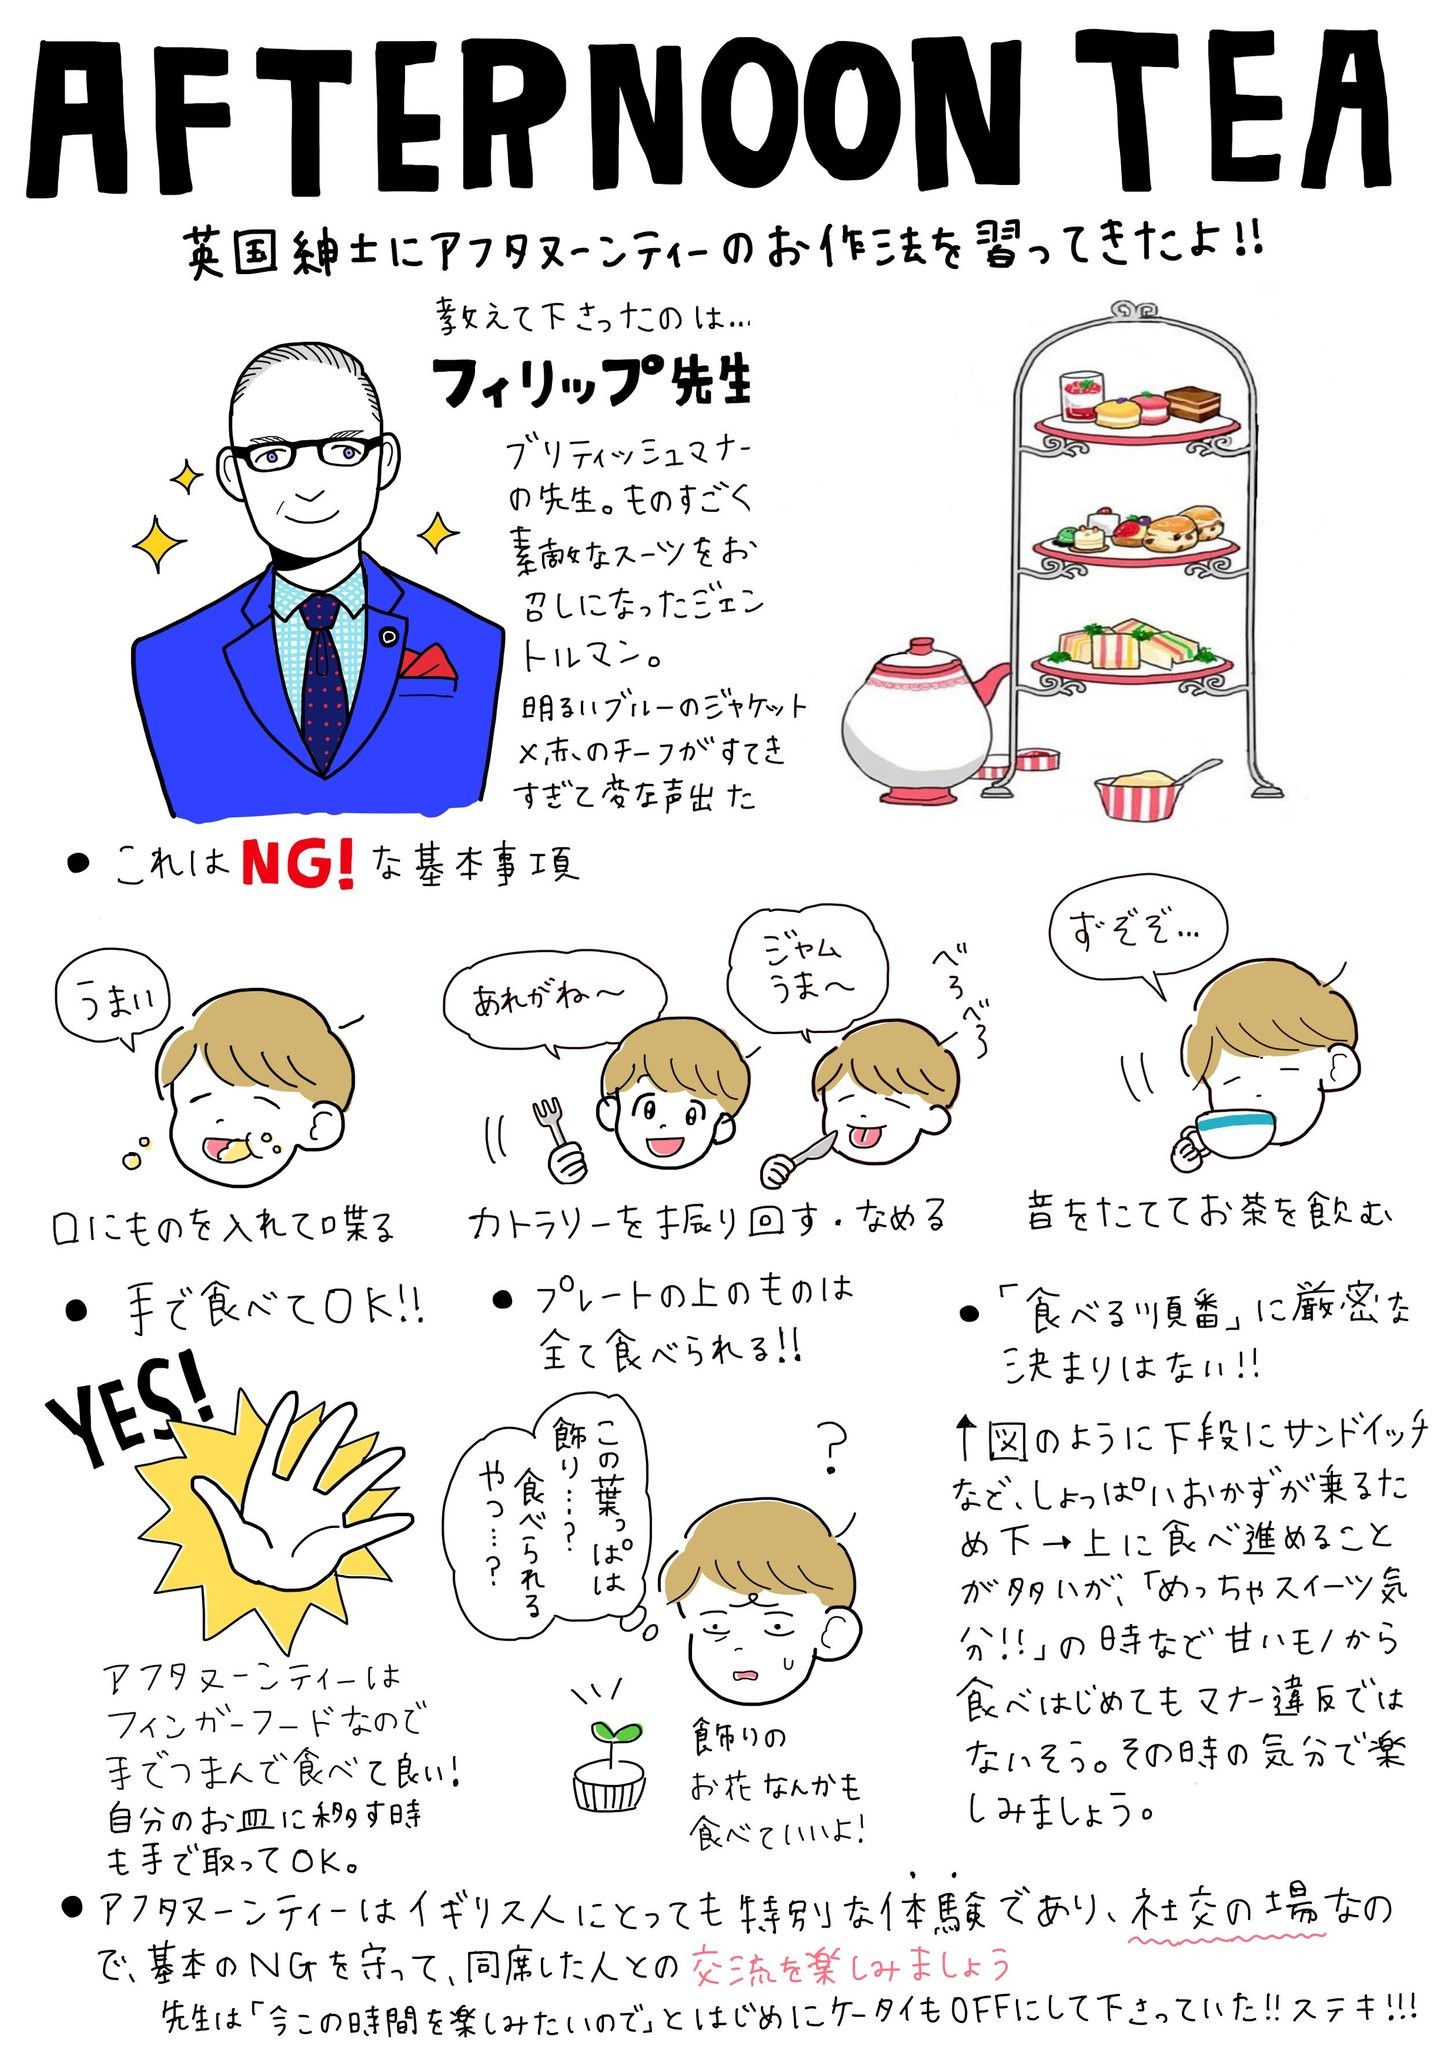 AFTERNOON TEA
英国紳士にアフタヌーンティーのお作法を習ってきたよ!!
教えて下さったのは…
フィリップ先生
ブリティッシュマナー
の先生。ものすごく
素敵なスーツをお
召しになったジェン
トルマン。
明るいブルーのジャケット
×赤のチーフがすてき
すぎて変な声出た
● これはNG!な基本事項
うまい
あれがね〜
ジャム
うま〜
べろべろ
ずぞぞ…
口にものを入れて喋る
カトラリーを振り回す・なめる
音をたててお茶を飲む
● 手で食べてOK!!
YES!
アフタヌーンティーは
フィンガーフードなので
手でつまんで食べて良い!
自分のお皿に移す時
も手で取ってOK。
● プレートの上のものは
全て食べられる!!
この葉っぱは
飾り…?
食べられる
やつ…?
?
飾りの
お花なんかも
食べていいよ!
● 「食べる順番」に厳密な
決まりはない!!
↑図のように下段にサンドイッチ
など、しょっぱいおかずが乗るた
め下→上に食べ進めること
が多いが、「めっちゃスイーツ気
分!!」の時など甘いモノから
食べはじめてもマナー違反では
ないそう。その時の気分で楽
しみましょう。
● アフタヌーンティーはイギリス人にとっても特別な体験であり、社交の場なの
で、基本のNGを守って、同席した人との交流を楽しみましょう
先生は「今この時間を楽しみたいので」とはじめにケータイもOFFにして下さっていた!!ステキ!!!